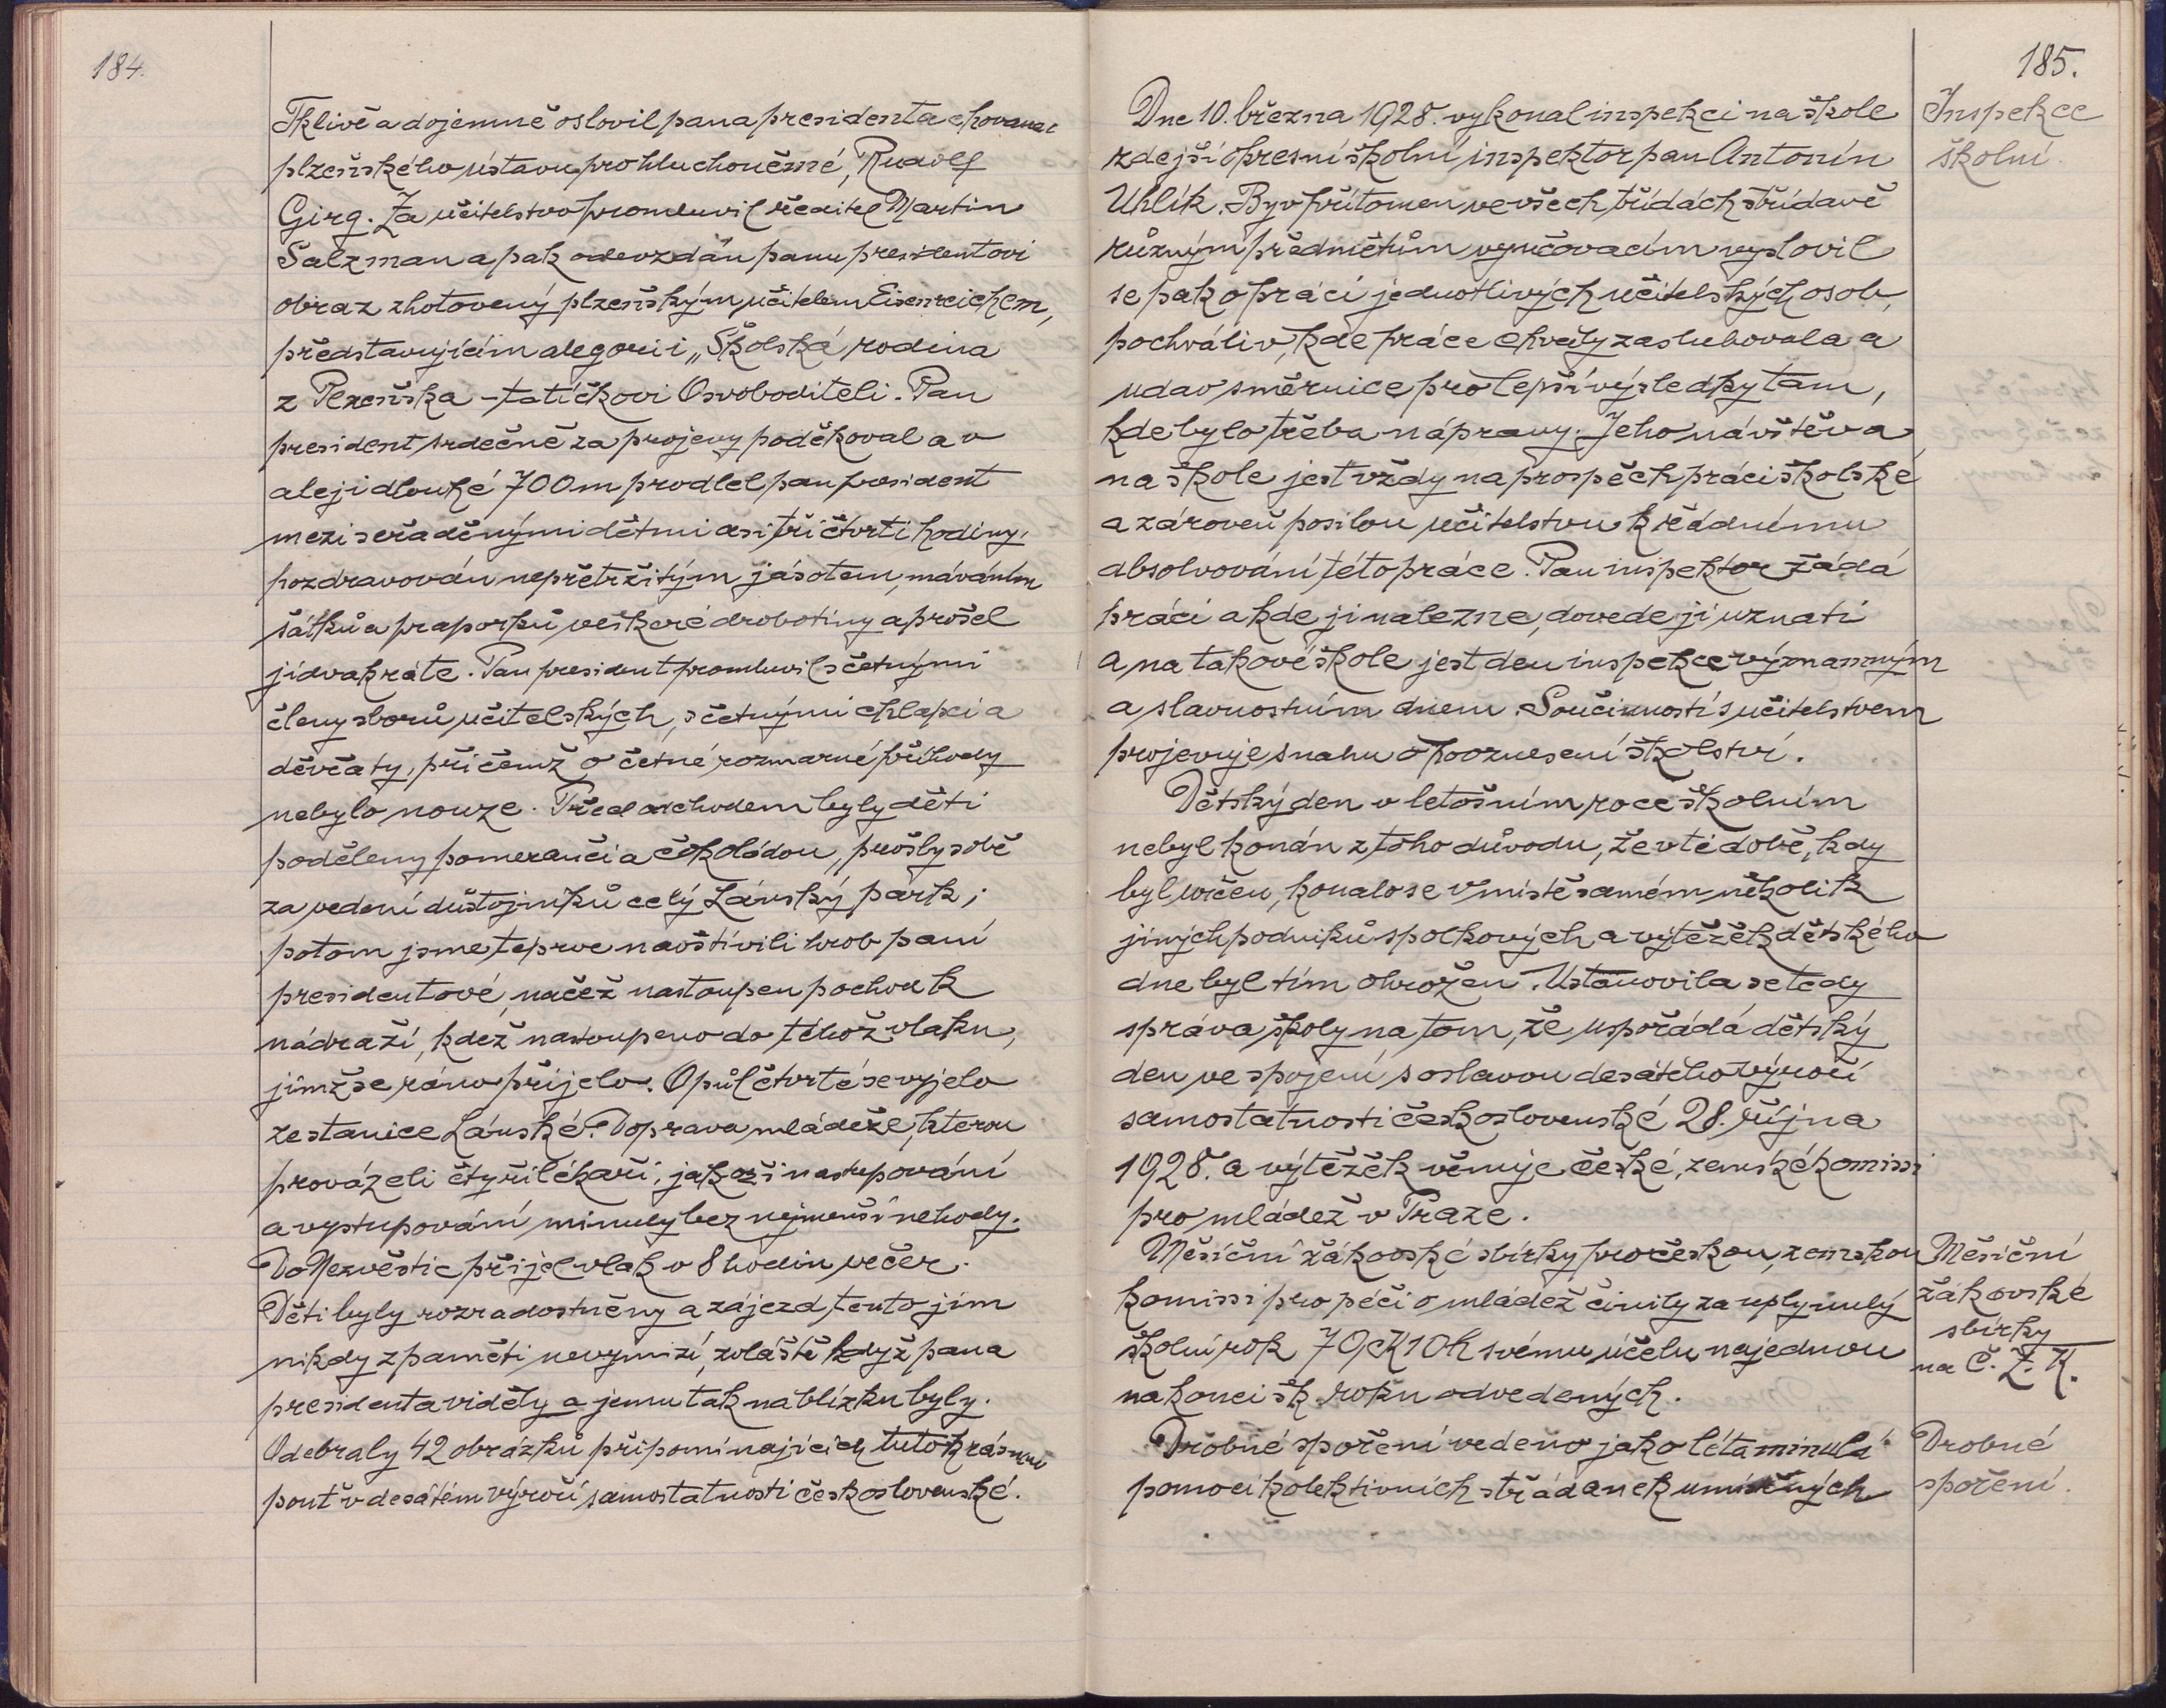 184.
Tklivě a dojemně oslovil pana presidenta chovanec
plzeňského ústavu pro hluchoněmé, Rudolf
Girg. Za učitelstvo promluvil ředitel Martin
Salzman a pak odevzdán panu presidentovi
obraz zhotovený plzeňským učitelem Eisenreichem,
představujícím alegorii „Školská rodina
z Plzeňska - tatíčkovi Osvoboditeli. Pan
president srdečně za projevy poděkoval a v
aleji dlouhé 700 m prodlel pan president
mezi seřaděnými dětmi asi tři čtvrti hodiny,
pozdravován nepřetržitým jásotem, máváním
šátků a praporků veškeré drobotiny a prošel
ji dvakráte. Pan president promluvil s četnými
členy sborů učitelských, s četnými chlapci a
děvčaty, při čemž o četné rozmarné příhody
nebylo nouze. Před odchodem byly děti
poděleny pomeranči a čokoládou, prošly sobě
za vedení důstojníků celý Lánský park;
potom jsme teprve navštívili hrob paní
presidentové, načež nastoupen pochod k
nádraží, kdež nastoupeno do téhož vlaku,
jímž se ráno přijelo. O půl čtvrté se vyjelo
ze stanice Lánské. Doprava mládeže, kterou
provázeli čtyři lékaři, jakož i nastupování
a vystupování minuly bez nejmenší nehody.
Do Nezvěstic přijel vlak v 8 hodin večer.
Děti byly rozradostněny a zájezd tento jim
nikdy z paměti nevymizí, zvláště když pana
presidenta viděly a jemu tak na blízku byly.
Odebraly 42 obrázků připomínajících tuto krásnou
pouť v desátém výročí samostatnosti československé.
185.
Dne 10. března 1928. vykonal inspekci na škole
zdejší okresní školní inspektor pan Antonín
Uhlík. Byv přítomen ve všech třídách střídavě
různým předmětům vyučovacím vyslovil
se pak o práci jednotlivých učitelských osob,
pochváliv, kde práce chvály zasluhovala a
udav směrnice pro lepší výsledky tam,
kde bylo třeba nápravy. Jeho návštěva
na škole jest vždy na prospěch práci školské
a zároveň posilou učitelstvu k řádnému
absolvování této práce. Pan inspektor žádá
práci a kde ji nalezne, dovede ji uznati
a na takové škole jest den inspekce významným
a slavnostním dnem. Součinností s učitelstvem
projevuje snahu o povznesení školství.
Dětský den v letošním roce školním
nebyl konán z toho důvodu, že v té době, kdy
byl určen, konalo se v místě samém několik
jiných podniků spolkových a výtěžek dětského
dne byl tím ohrožen. Ustanovila se tedy
správa školy na tom, že uspořádá dětský
den ve spojení s oslavou desátého výročí
samostatnosti československé 28. října
1928. a výtěžek věnuje české, zemské komissi
pro mládež v Praze.
Měsíční žákovské sbírky pro českou, zemskou
komissi pro péči o mládež činily za uplynulý
školní rok 70 K 10 h svému účelu najednou
na konci šk. roku odvedených.
Drobné spoření vedeno jako léta minulá
pomocí kolektivních střádanek umístěných
Inspekce
školní.
Měsíční
žákovské
sbírky
na Č. Z. K.
Drobné
spoření.